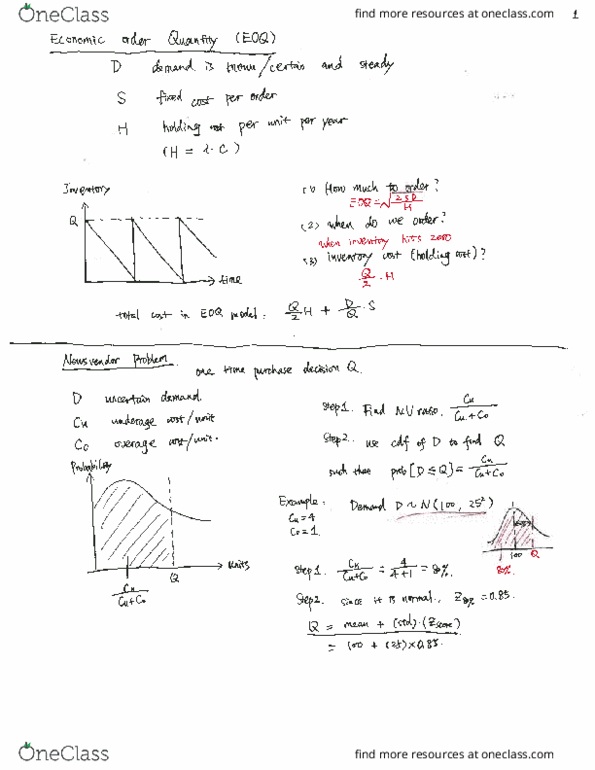 OneClass
find more resources at oneclass.com
1
Economic order Quantity (EOQ)
D demand is known/certain and steady
S fixed cost per order
H holding cost per unit per year
(H = i·C)
Inventory
Q
time
(1) How much to order?
EOQ = √(2SD/H)
(2) when do we order?
when inventory hits zero
(3) inventory cost (holding cost)?
Q/2 · H
total cost in EOQ model: Q/2 H + D/Q · S
Newsvendor Problem. one time purchase decision Q.
D uncertain demand.
Cu underage cost/unit
Co overage cost/unit.
Probability
Units
Q
Cu/(Cu+Co)
Step 1. Find NV ratio. Cu/(Cu+Co)
Step 2. use cdf of D to find Q
such that prob[D ≤ Q] = Cu/(Cu+Co)
Example: Demand D ~ N(100, 25²)
Cu = 4
Co = 1.
100
Q
80%
Step 1. Cu/(Cu+Co) = 4/(4+1) = 80%.
Step 2. since it is normal, Z80% = 0.85.
Q = mean + (std)·(Zscore)
= 100 + (25)×0.85.
OneClass
find more resources at oneclass.com